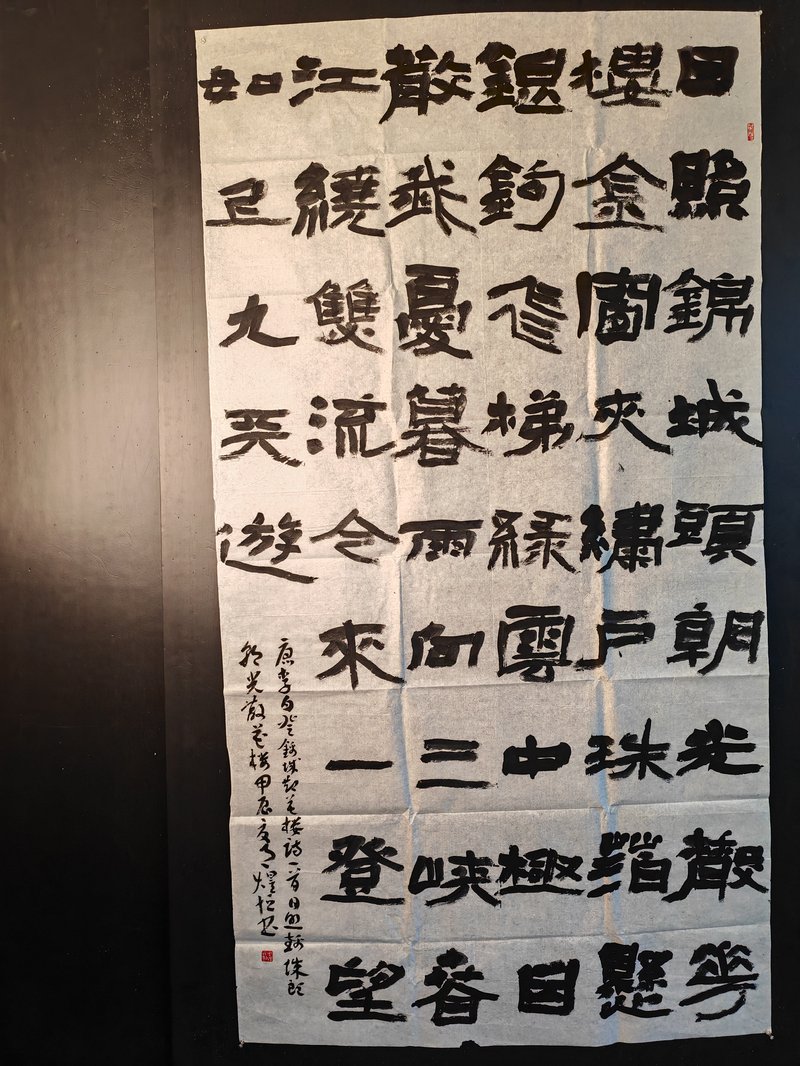 日照錦城頭朝光散華
樓金窗夾繡戶珠箔懸
銀鉤飛梯綠雲中極目
散我憂暮雨向三峽春
江繞雙流今來一登望
如上九天遊
唐李白登錦城散花樓詩一首日照錦城頭
朝光散花樓甲辰夏月書